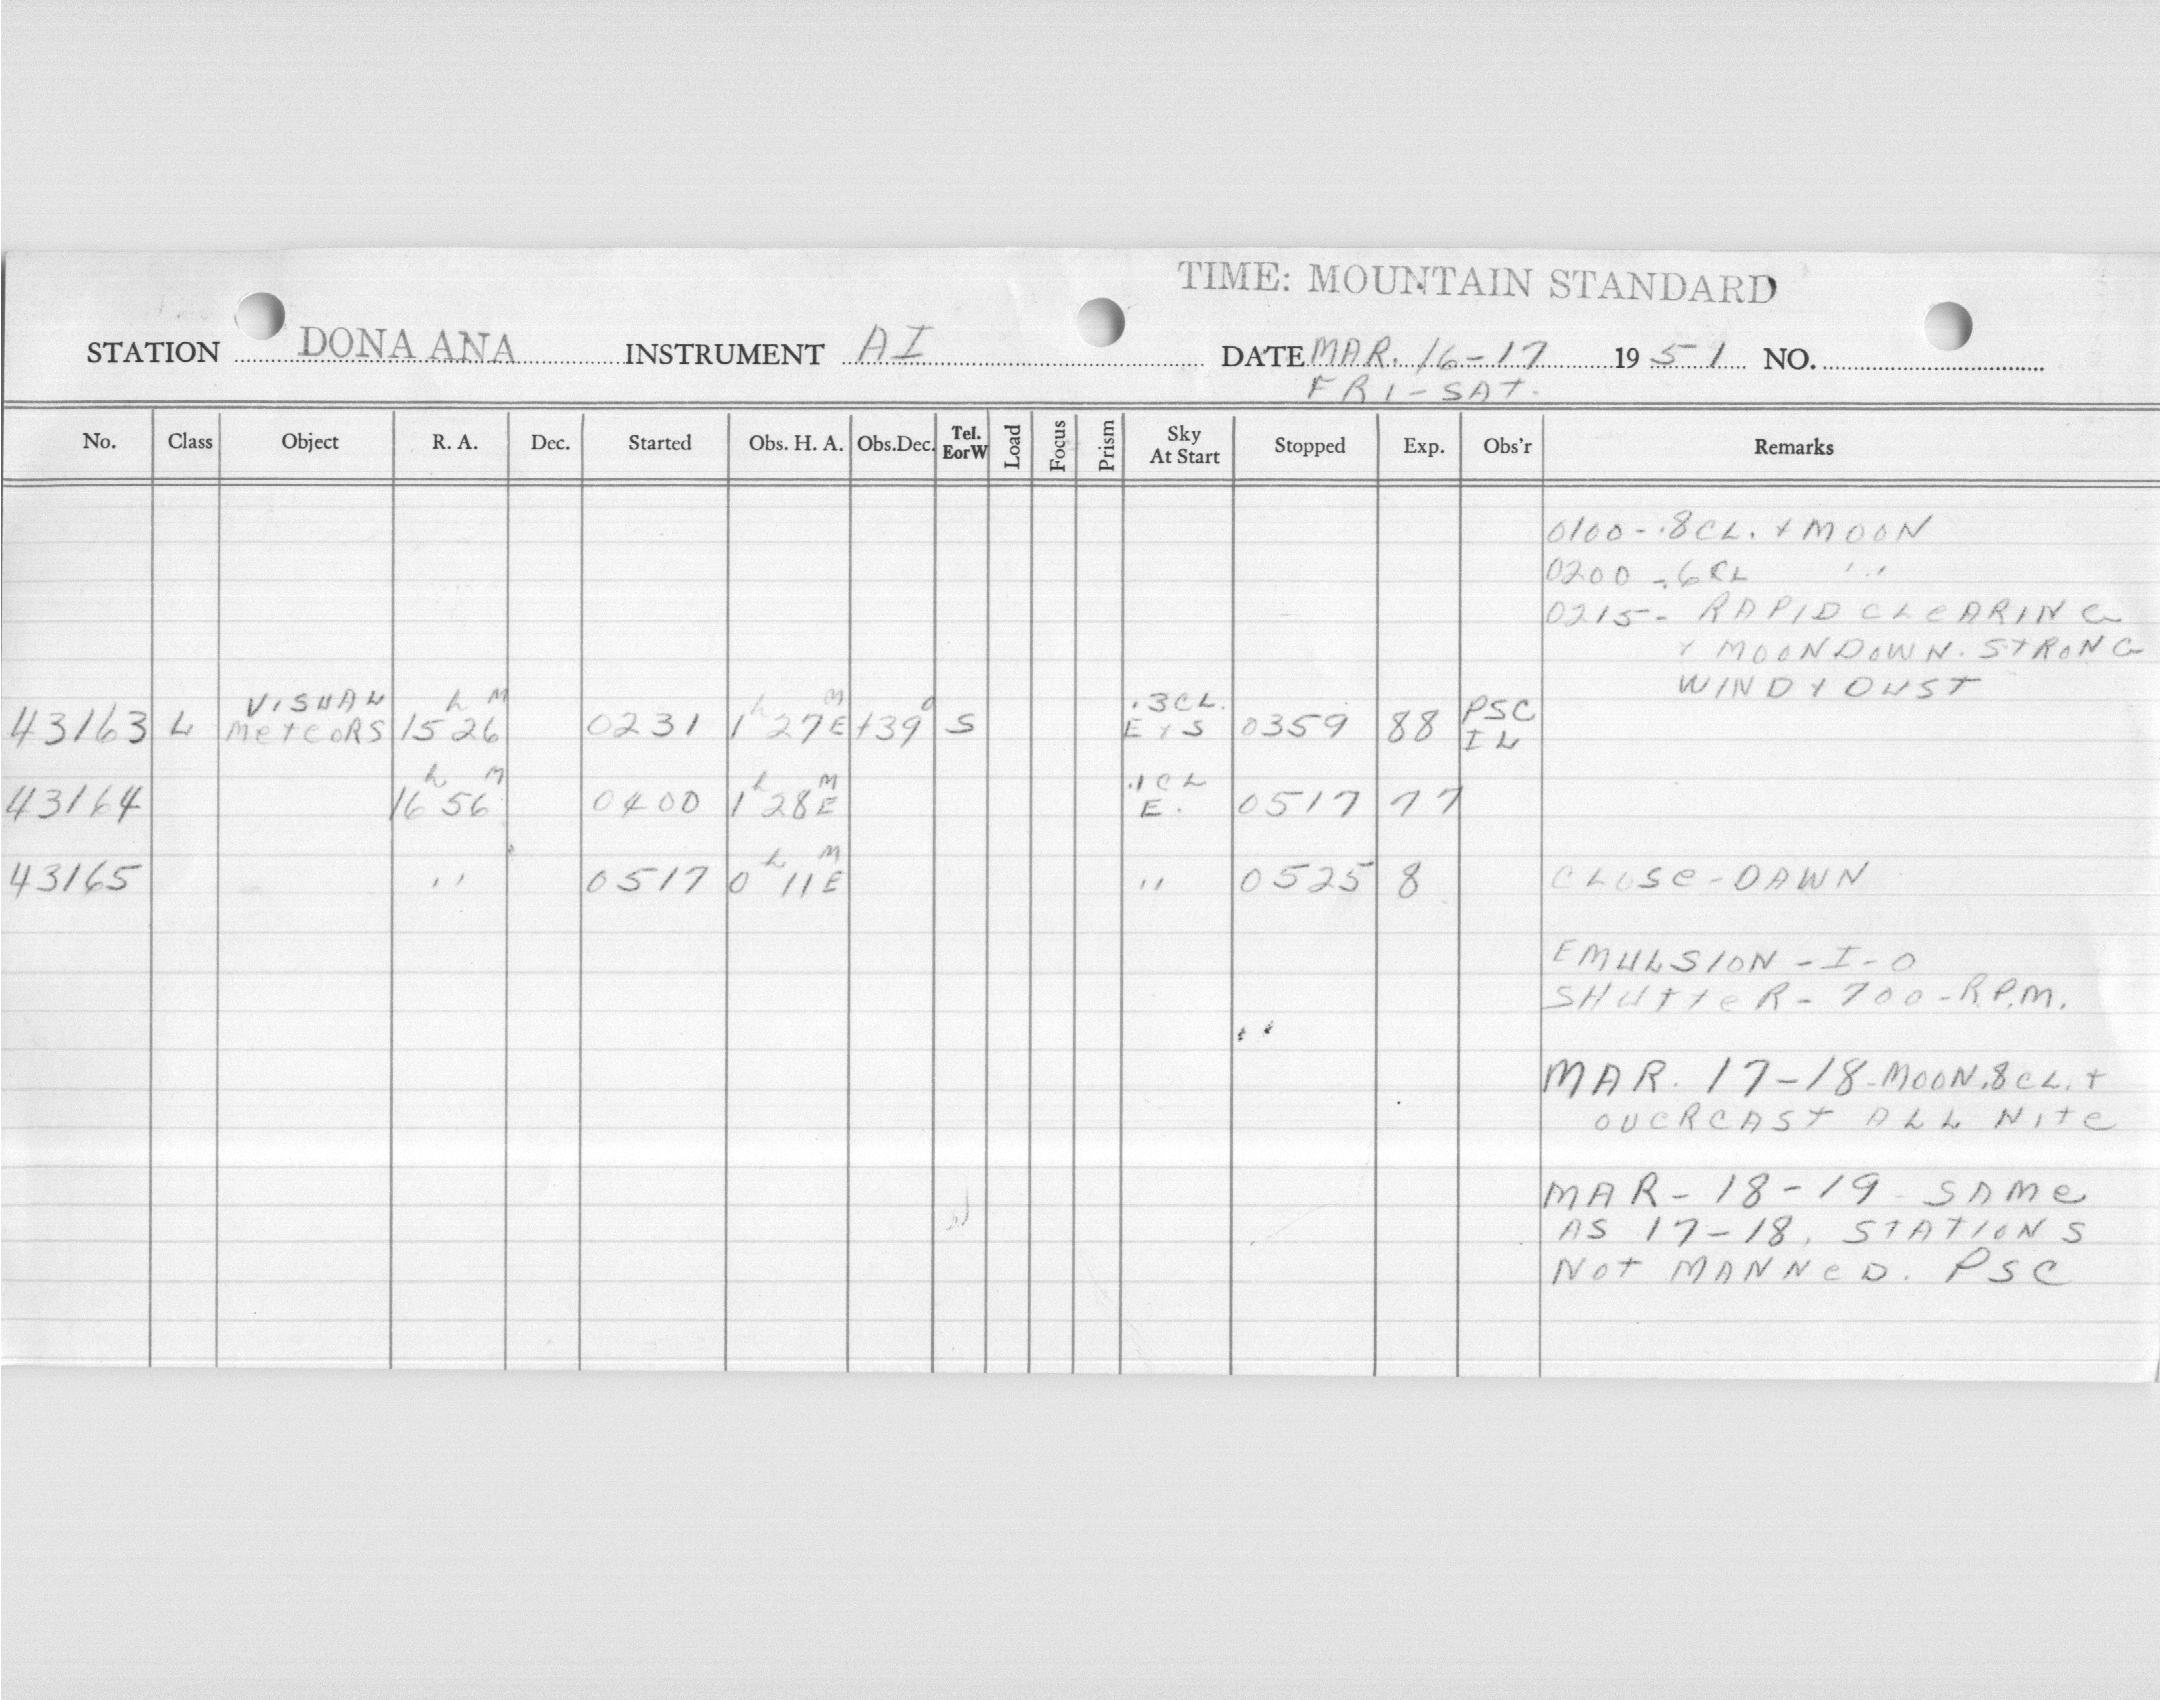 TIME: MOUNTAIN STANDARD
STATION DONA ANA INSTRUMENT AI DATE MAR. 16-17 1951 NO.
FRI-SAT.
No. Class Object R. A. Dec. Started Obs. H. A. Obs.Dec. Tel. EorW Load Focus Prism Sky At Start Stopped Exp. Obs'r Remarks
0100-.8CL. + MOON
0200 -.6CL ''
0215- RAPID CLEARING
+ MOONDOWN. STRONG
WIND + DUST
43163 L VISUAL METEORS 15h 26M 0231 1h 27M E +39° S .3CL. E + S 0359 88 PSC IL
43164 16h 56M 0400 1h 28M E .1CL E. 0517 77
43165 '' 0517 0h 11M E '' 0525 8 CLOSE-DAWN
EMULSION - I-O
SHUTTER- 700-R.P.M.
MAR. 17-18-MOON.8CL.+
OVERCAST ALL NITE
MAR- 18-19- SAME
AS 17-18, STATIONS
NOT MANNED. PSC